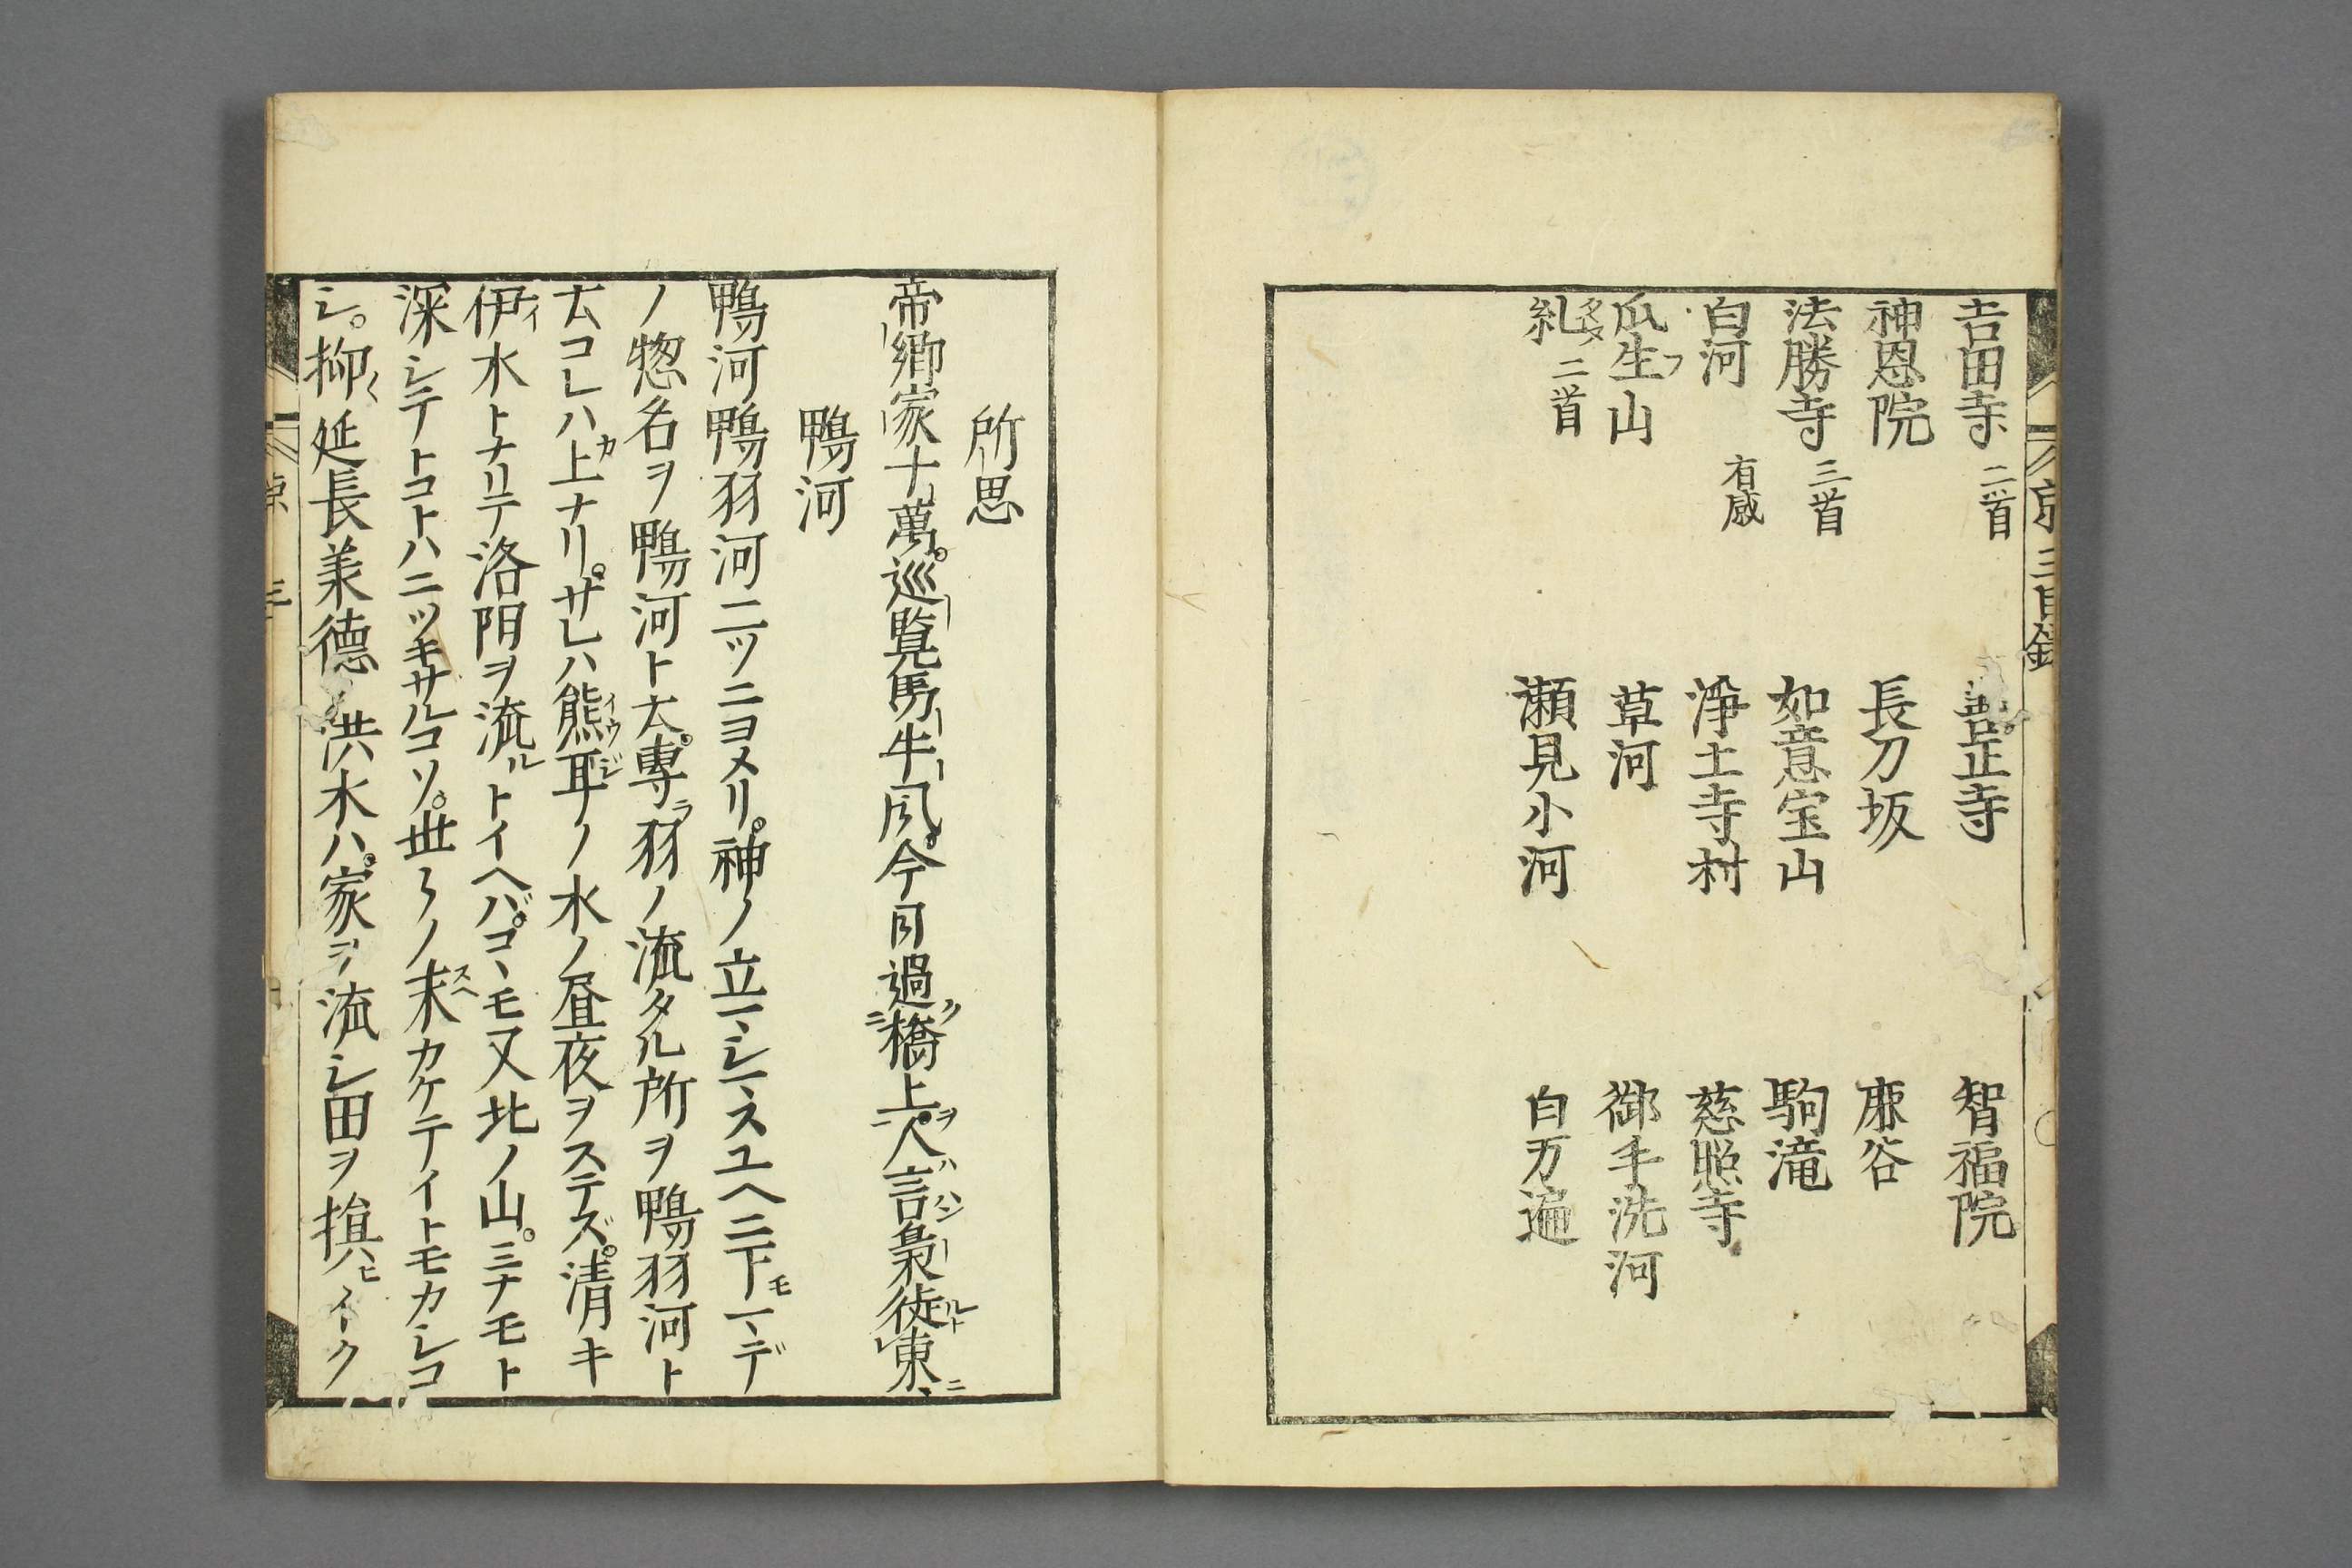 吉田寺 二首
善正寺
智福院
神恩院
長刀坂
鹿谷
法勝寺 三首
如意宝山
駒滝
白河 有感
浄土寺村
慈照寺
瓜生フ山
草河
御手洗河
糺タヾス 二首
瀬見小河
百万遍
京三目錄
所思
帝郷家十萬。巡覧馬牛風。今日過橋上。人言梟徙東
鴨河
鴨河鴨羽河二ツニヨメリ。神ノ立マシマスユヘニ下モマデ
ノ惣名ヲ鴨河ト云。専ラ羽ノ流タル所ヲ鴨羽河ト
云コレハ上カナリ。ザレハ熊耳イウジノ水ノ昼夜ヲステズ。清キ
伊イ水トナリテ洛陽ヲ流ルトイヘバ。コヽモ又北ノ山。ミナモト
深シテトコトハニツキサルコソ。世々ノ末スヘカケテイトモカシコ
シ。抑〱延長兼徳ノ洪水ハ。家ヲ流シ田ヲ損ヒイク
京 三